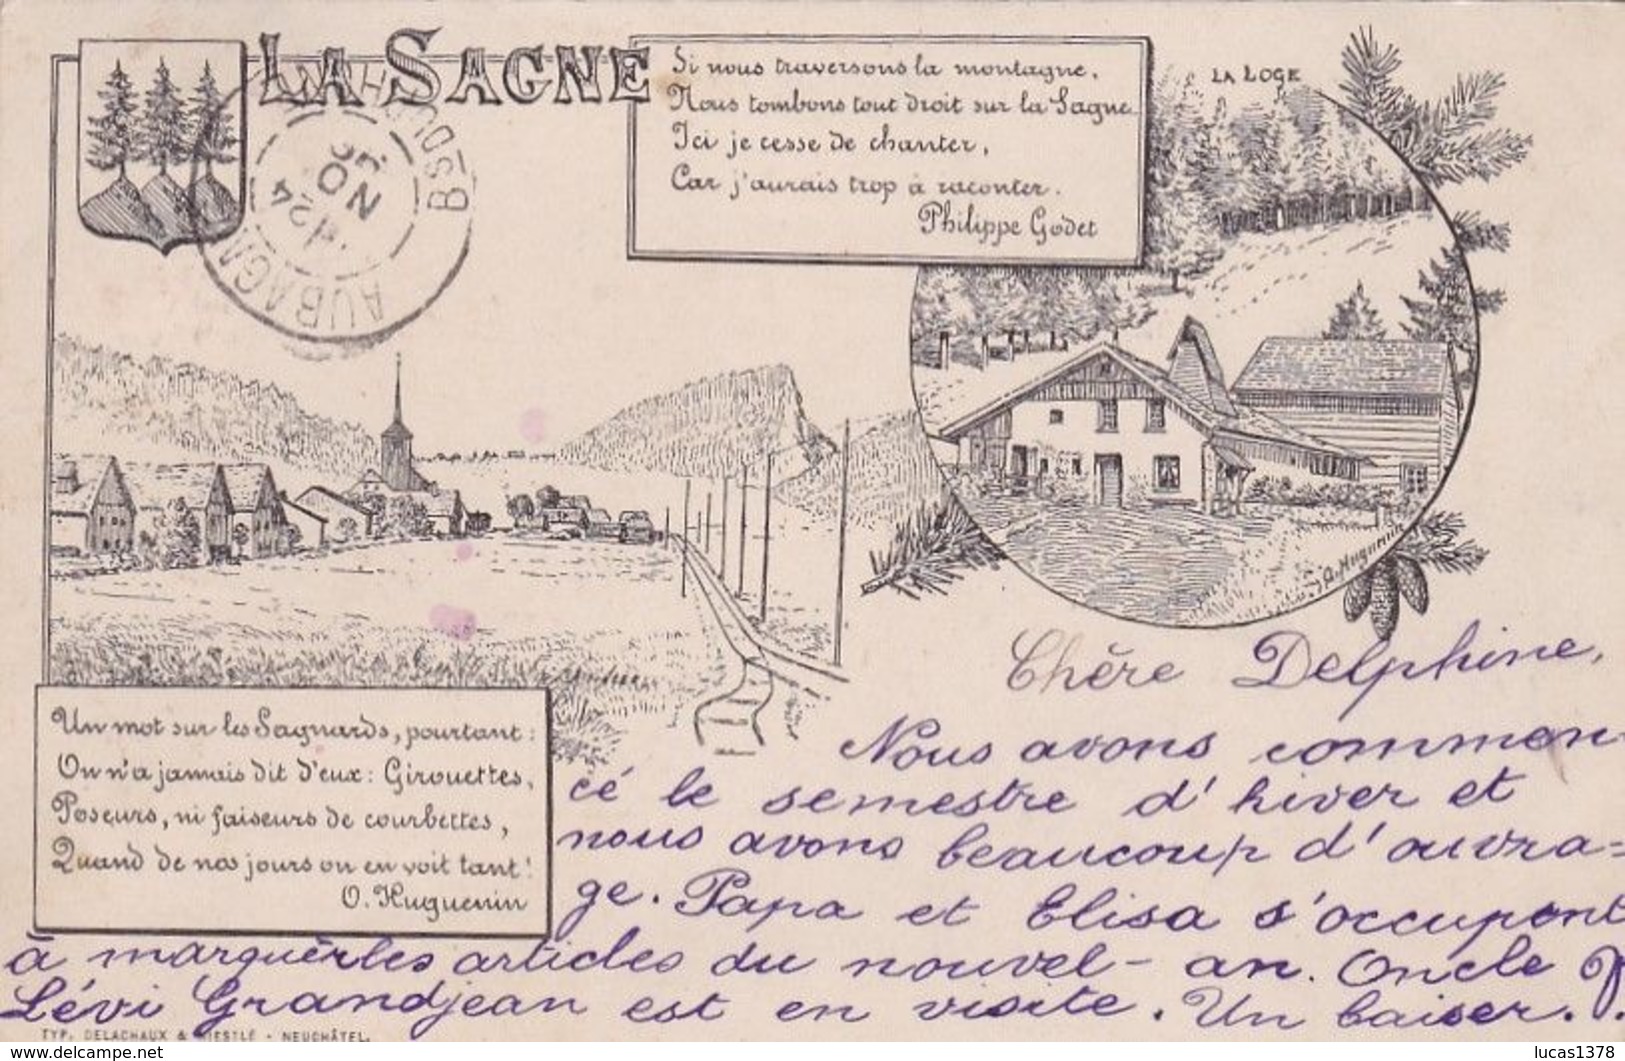 LA SAGNE
Si nous traversons la montagne,
Nous tombons tout droit sur la Sagne
Ici je cesse de chanter,
Car j'aurais trop à raconter.
Philippe Godet
LA LOGE
AUBAGNE
Bs DU RH
24
NO
A. Huguenin
Un mot sur les Sagnards, pourtant:
On n'a jamais dit d'eux: Girouettes,
Poseurs, ni faiseurs de courbettes,
Quand de nos jours on en voit tant!
O. Huguenin
Chère Delphine,
Nous avons commen
cé le semestre d'hiver et
nous avons beaucoup d'ouvra=
ge. Papa et Elisa s'occupent
à marquer les articles du nouvel-an. Oncle
Lévi Grandjean est en visite. Un baiser.
TYP. DELACHAUX & NIESTLÉ - NEUCHÂTEL.
lucas1378